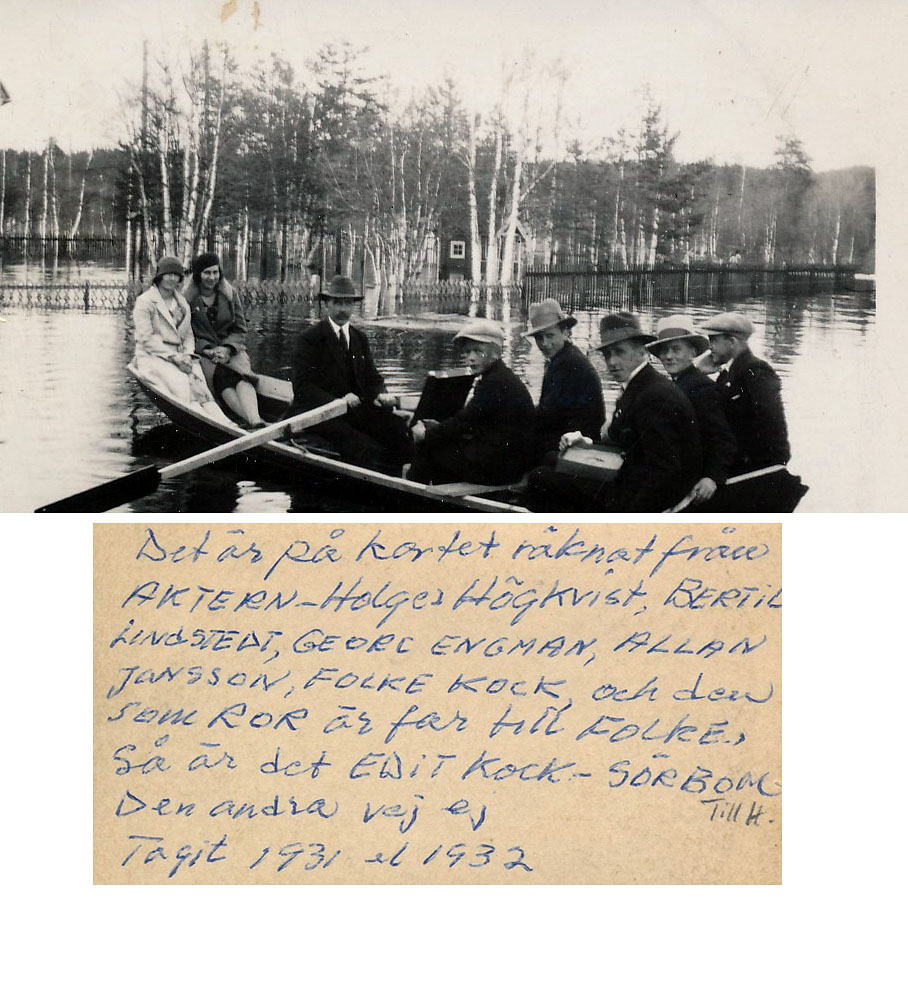 Det är på kortet räknat från
AKTERN - Holger Högkvist, BERTIL
LINDSTEDT, GEORG ENGMAN, ALLAN
JANSSON, FOLKE KOCK, och den
som ROR är far till FOLKE,
Så är det EDIT KOCK - SÖRBOM
Till H.
Den andra vej ej
Tagit 1931 el 1932